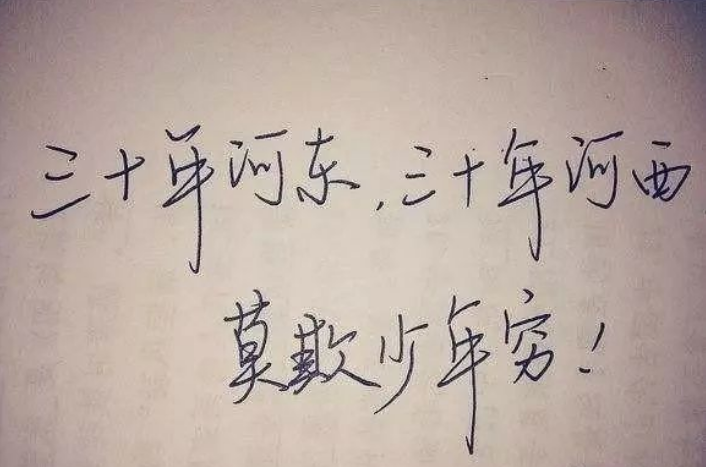 三十年河东,三十年河西
莫欺少年穷!